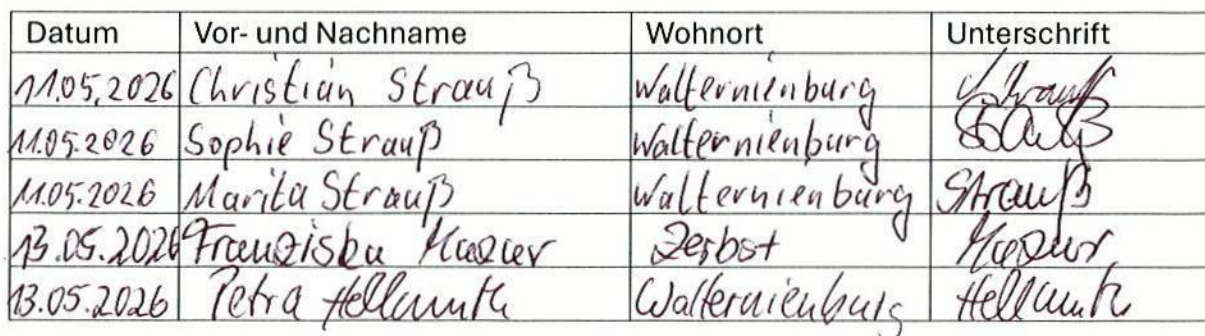 Datum Vor- und Nachname Wohnort Unterschrift
11.05.2026 Christian Strauß Walternienburg Strauß
11.05.2026 Sophie Strauß Walternienburg
11.05.2026 Marita Strauß Walternienburg Strauß
13.05.2026 Franziska Mazur Zerbst Mazur
13.05.2026 Petra Hellmuth Walternienburg Hellmuth